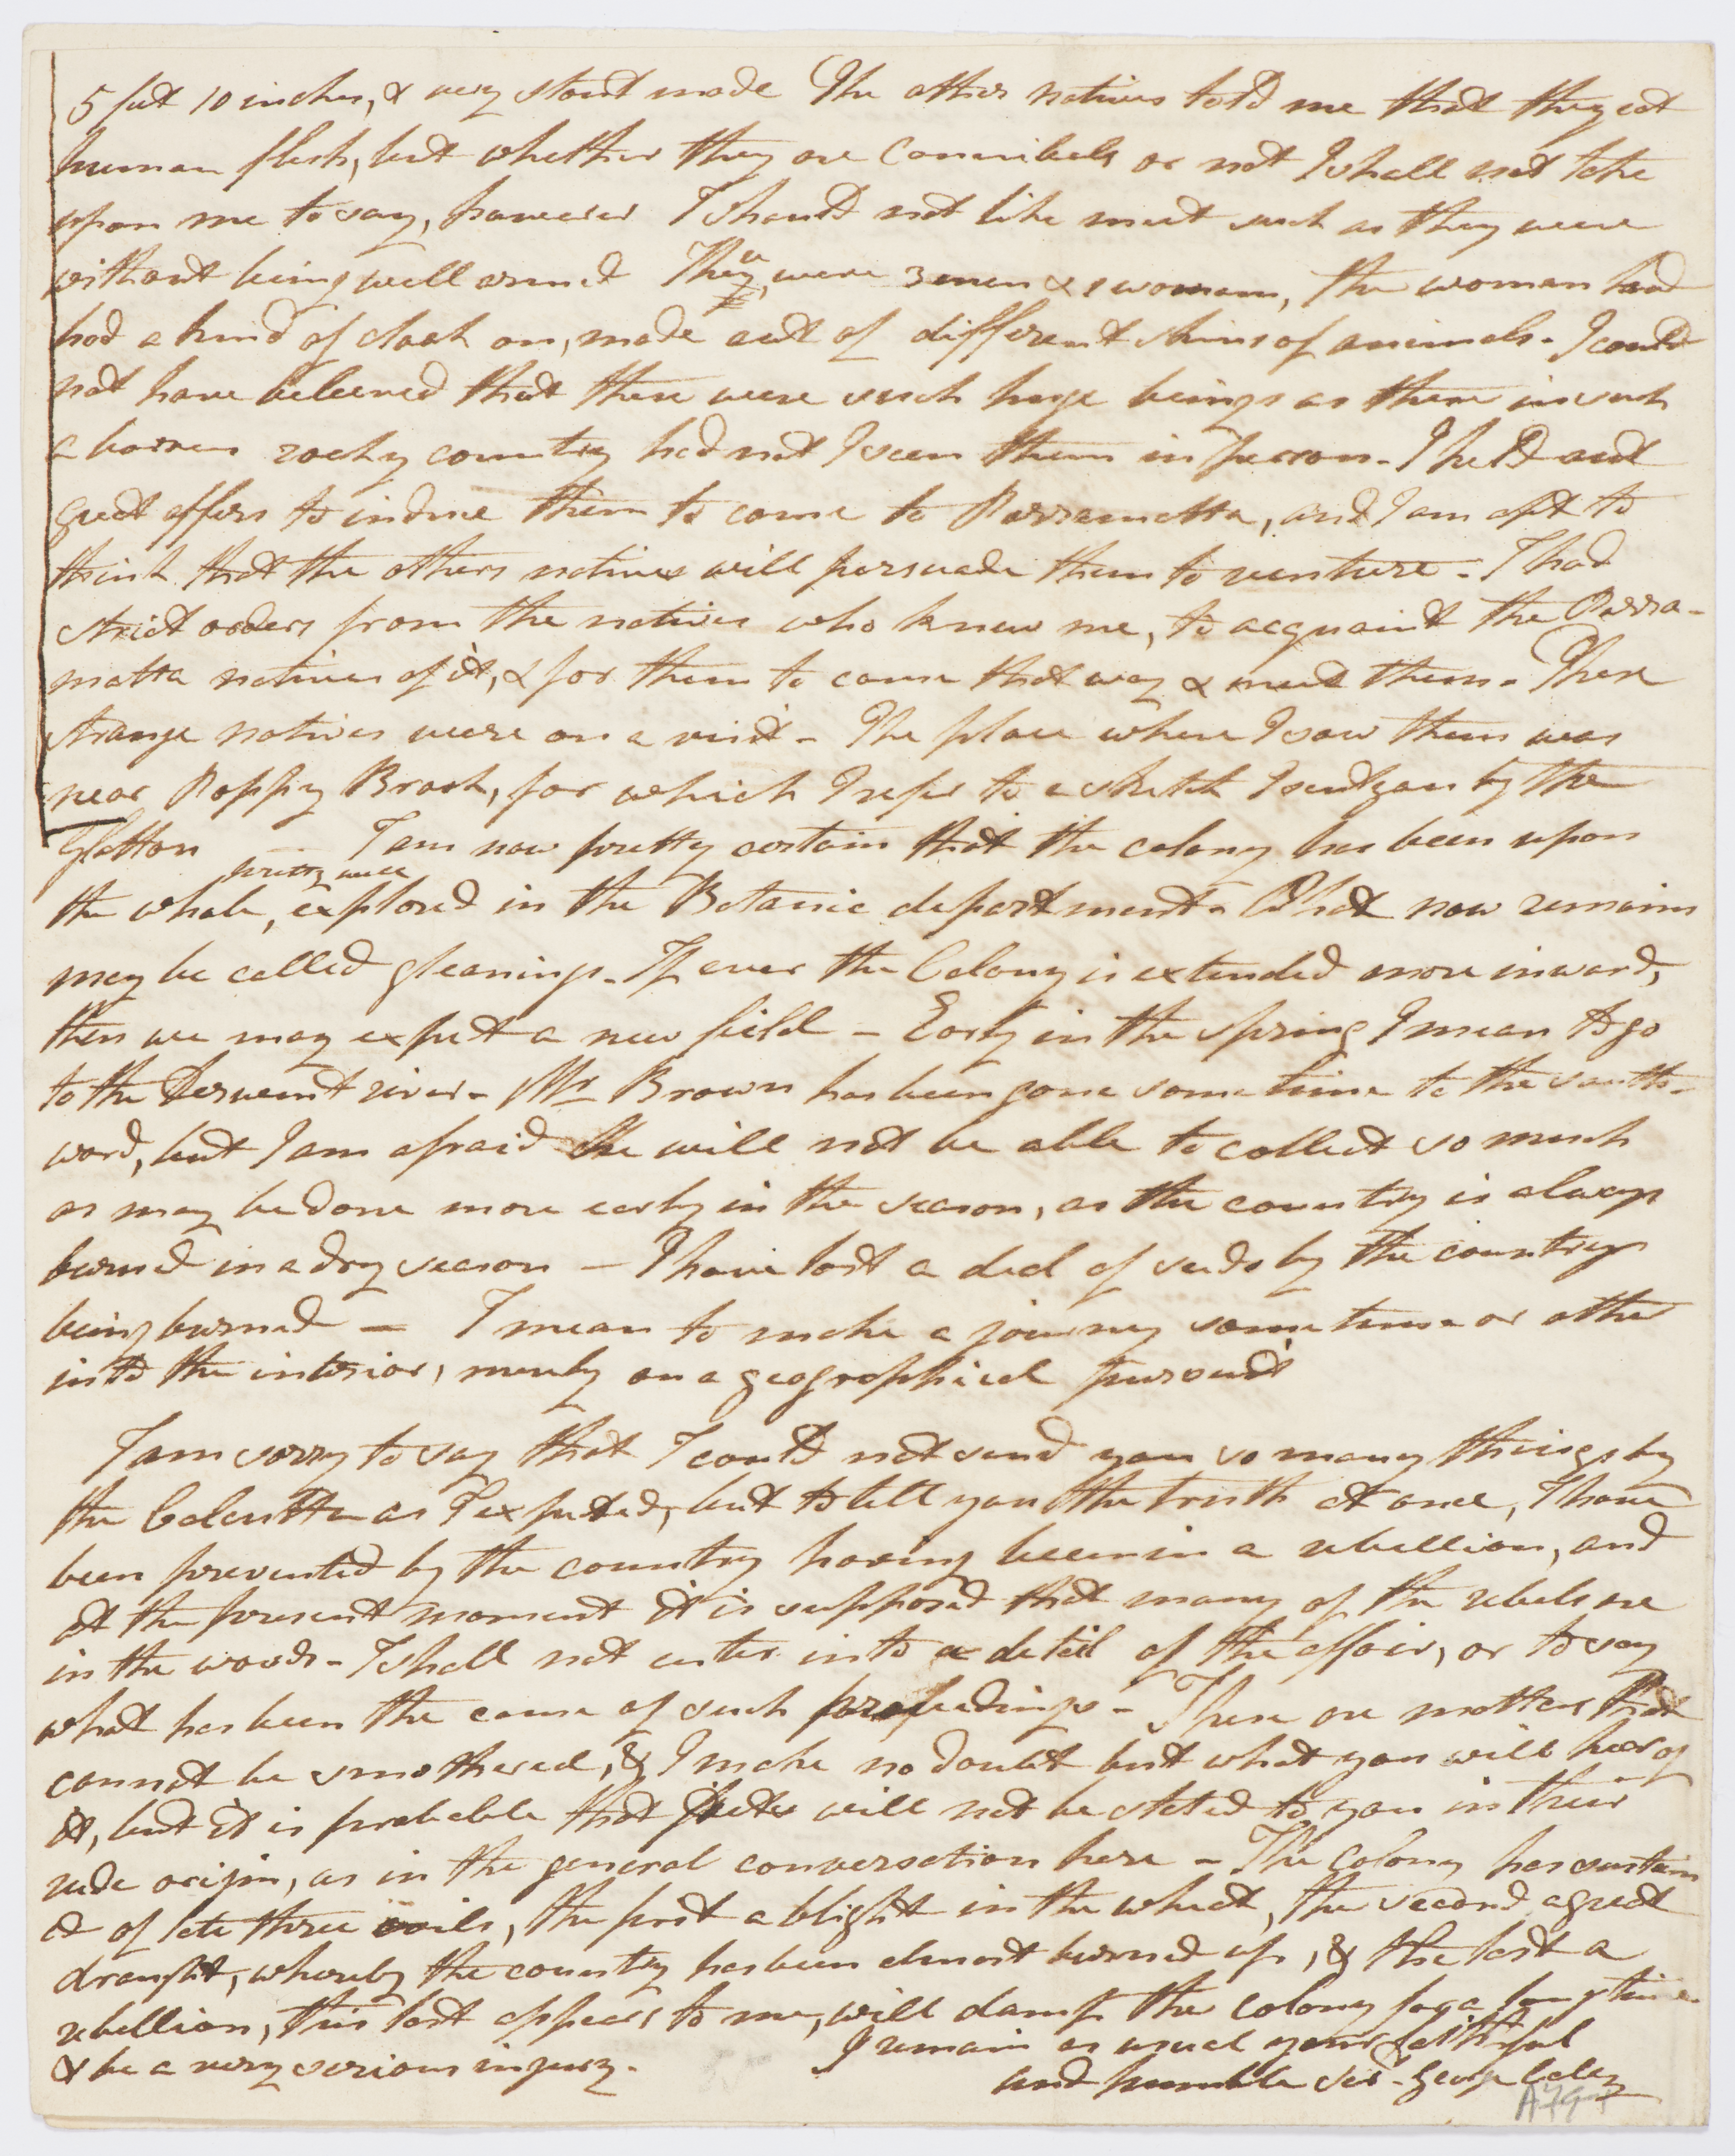 5 feet 10 inches, & very stout made The other natives told me that they eat
human flesh, but whether they are Cannibals or not I shall not take
upon me to say, however I should not like meet such as they were
without being well armed There were 3 men & 1 woman, the woman had
had a kind of cloak on, made out of different skins of animals - I could
not have beleived that there were such huge beings as these in such
a barren rocky country had not I seen them in person - I held out
great offers to induce them to come to Parramatta, and I am apt to
think that the others natives will persuade them to venture - I had
strict orders from the natives who knew me, to acquaint the Parra-
matta natives of it, & for them to come that way & meet them - These
strange natives were on a visit - The place where I saw them was
near Poppy Brook, for which I refer to a sketch I sent you by the
Glatton I am now pretty certain that the colony has been upon
pretty well
the whole, explored in the Botanic department - What now remains
may be called gleanings - If ever the Colony is extended more inward,
then we may expect a new field - Early in the spring I mean to go
to the Derwent river - Mr Brown has been gone some time to the south-
ward, but I am afraid he will not be able to collect so much
as may be done more early in the season, as the country is always
burned in a dry season - I have lost a deal of seeds by the countrys
being burned - I mean to make a journey some time or other
into the interior, merely on a geographical pursuit
I am sorry to say that I could not send you so many things by
the Calcutta as I expected, but to tell you the truth at once, I have
been prevented by the country having been in a rebellion, and
at the present moment it is supposed that many of the rebels are
in the woods - I shall not enter into a detail of the affair, or to say
what has been the cause of such proceedings - These are matters that
cannot be smothered, & I make no doubt but what you will hear of
it, but it is probable that facts will not be stated to you in their
rude origin, as in the general conversation here - The Colony has sustain
ed of late three evils, the first a blight in the wheat, the second a great
draught, whereby the country has been almost burned up, & the last a
rebellion, this last appears to me, will damp the colony for a long time
& be a very serious injury. I remain as usual your faithful
and humble ser.t George Caley